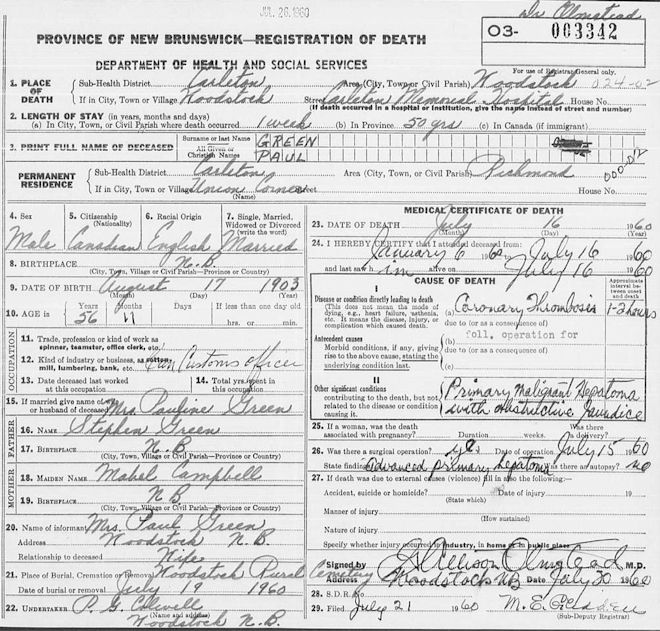 JUL 26 1960
Dr Olmstead
PROVINCE OF NEW BRUNSWICK—REGISTRATION OF DEATH
03- 003342
DEPARTMENT OF HEALTH AND SOCIAL SERVICES
For use of Registrar General only.
024-02
1. PLACE OF DEATH
Sub-Health District Carleton Area (City, Town or Civil Parish) Woodstock
If in City, Town or Village Woodstock Street Carleton Memorial Hospital House No.
(If death occurred in a hospital or institution, give the name instead of street and number)
2. LENGTH OF STAY (in years, months and days)
(a) In City, Town, or Civil Parish where death occurred 1 week (b) In Province 50 yrs (c) In Canada (if immigrant)
3. PRINT FULL NAME OF DECEASED
Surname or last Name GREEN
All Given or Christian Names PAUL
000-02
PERMANENT RESIDENCE
Sub-Health District Carleton Area (City, Town or Civil Parish) Richmond
If in City, Town or Village Union Corner Street House No.
(Name)
4. Sex Male
5. Citizenship (Nationality) Canadian
6. Racial Origin English
7. Single, Married, Widowed or Divorced (write the word) Married
8. BIRTHPLACE N.B
(City, Town, Village or Civil Parish or Country)
9. DATE OF BIRTH August 17 1903
(Month) (Day) (Year)
10. AGE in Years 56 Months 11 Days If less than one day old
hrs. or min.
OCCUPATION
11. Trade, profession or kind of work as spinner, teamster, office clerk, etc.
12. Kind of industry or business, as cotton mill, lumbering, bank, etc. Can Customs officer
13. Date deceased last worked at this occupation
14. Total yrs. spent in this occupation
15. If married give name of husband or wife of deceased Mrs. Pauline Green
FATHER
16. NAME Stephen Green
17. BIRTHPLACE N.B
(City, Town, Village or Civil Parish or Province or Country)
MOTHER
18. MAIDEN NAME Mabel Campbell
19. BIRTHPLACE N B
(City, Town, Village or Civil Parish or Province or Country)
20. Name of informant Mrs. Paul Green
Address Woodstock N.B.
Relationship to deceased Wife
21. Place of Burial, Cremation or Removal Woodstock Rural Cemetery
Date of burial or removal July 19 1960
22. UNDERTAKER
(Name and address)
Woodstock N.B.
MEDICAL CERTIFICATE OF DEATH
23. DATE OF DEATH July 16 1960
(Month) (Day) (Year)
24. I HEREBY CERTIFY that I attended deceased from
January 6 1960 to July 16 1960
and last saw him alive on July 16 1960
CAUSE OF DEATH
Approximate interval between onset and death
I
Disease or condition directly leading to death
(This does not mean the mode of dying, e.g., heart failure, asthenia, etc. It means the disease, injury, or complication which caused death.
(a) Coronary Thrombosis 1-2 hours
due to (or as a consequence of)
foll. operation for
Antecedent causes
Morbid conditions, if any, giving rise to the above cause, stating the underlying condition last.
(b)
due to (or as a consequence of)
(c)
II
Other significant conditions
contributing to the death, but not related to the disease or condition causing it.
Primary malignant hepatoma
with obstructive jaundice
25. If a woman, was the death associated with pregnancy? Duration weeks. Was there a delivery?
26. Was there a surgical operation? yes Date of operation July 15 1960
State findings Advanced primary hepatoma Was there an autopsy? no
27. If death was due to external causes (violence) fill in also the following:-
Accident, suicide or homicide? Date of injury 19
(State which)
Manner of injury
(How sustained)
Nature of injury
Specify whether injury occurred in industry, in home or in public place
Signed by G Allison Olmstead M.D.
Address Woodstock NB Date July 20 1960
28. S.D.R.
29. Filed July 21 1960
(Sub-Deputy Registrar)